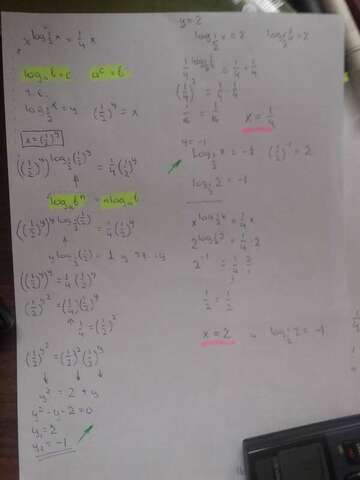 x^{log_{1/2} x} = 1/4 x
log_a b = c   a^c = b
log_{1/2} x = y   (1/2)^y = x
x = (1/2)^y
((1/2)^y)^{log_{1/2} (1/2)^y} = 1/4 (1/2)^y
log_a b^n = n log_a b
((1/2)^y)^{y log_{1/2} (1/2)} = 1/4 (1/2)^y
y log_{1/2} (1/2) = 1
((1/2)^y)^y = 1/4 (1/2)^y
(1/2)^{y^2} = (1/4)(1/2)^y
1/4 = (1/2)^2
(1/2)^{y^2} = (1/2)^2 (1/2)^y
y^2 = 2 + y
y^2 - y - 2 = 0
y_1 = 2
y_2 = -1
y = 2
log_{1/2} x = 2
= 1/4 · 1/4
(1/4)^2 = 1/4 · 1/4
1/16 = 1/16
x = 1/4
y = -1
log_{1/2} x = -1   (1/2)^{-1} = 2
log_{1/2} 2 = -1
x^{log_{1/2} x} = 1/4 x
2^{log_{1/2} 2} = 1/4 · 2
2^{-1} = 1/4 · 2/1
1/2 = 1/2
x = 2   log_{1/2} 2 = -1